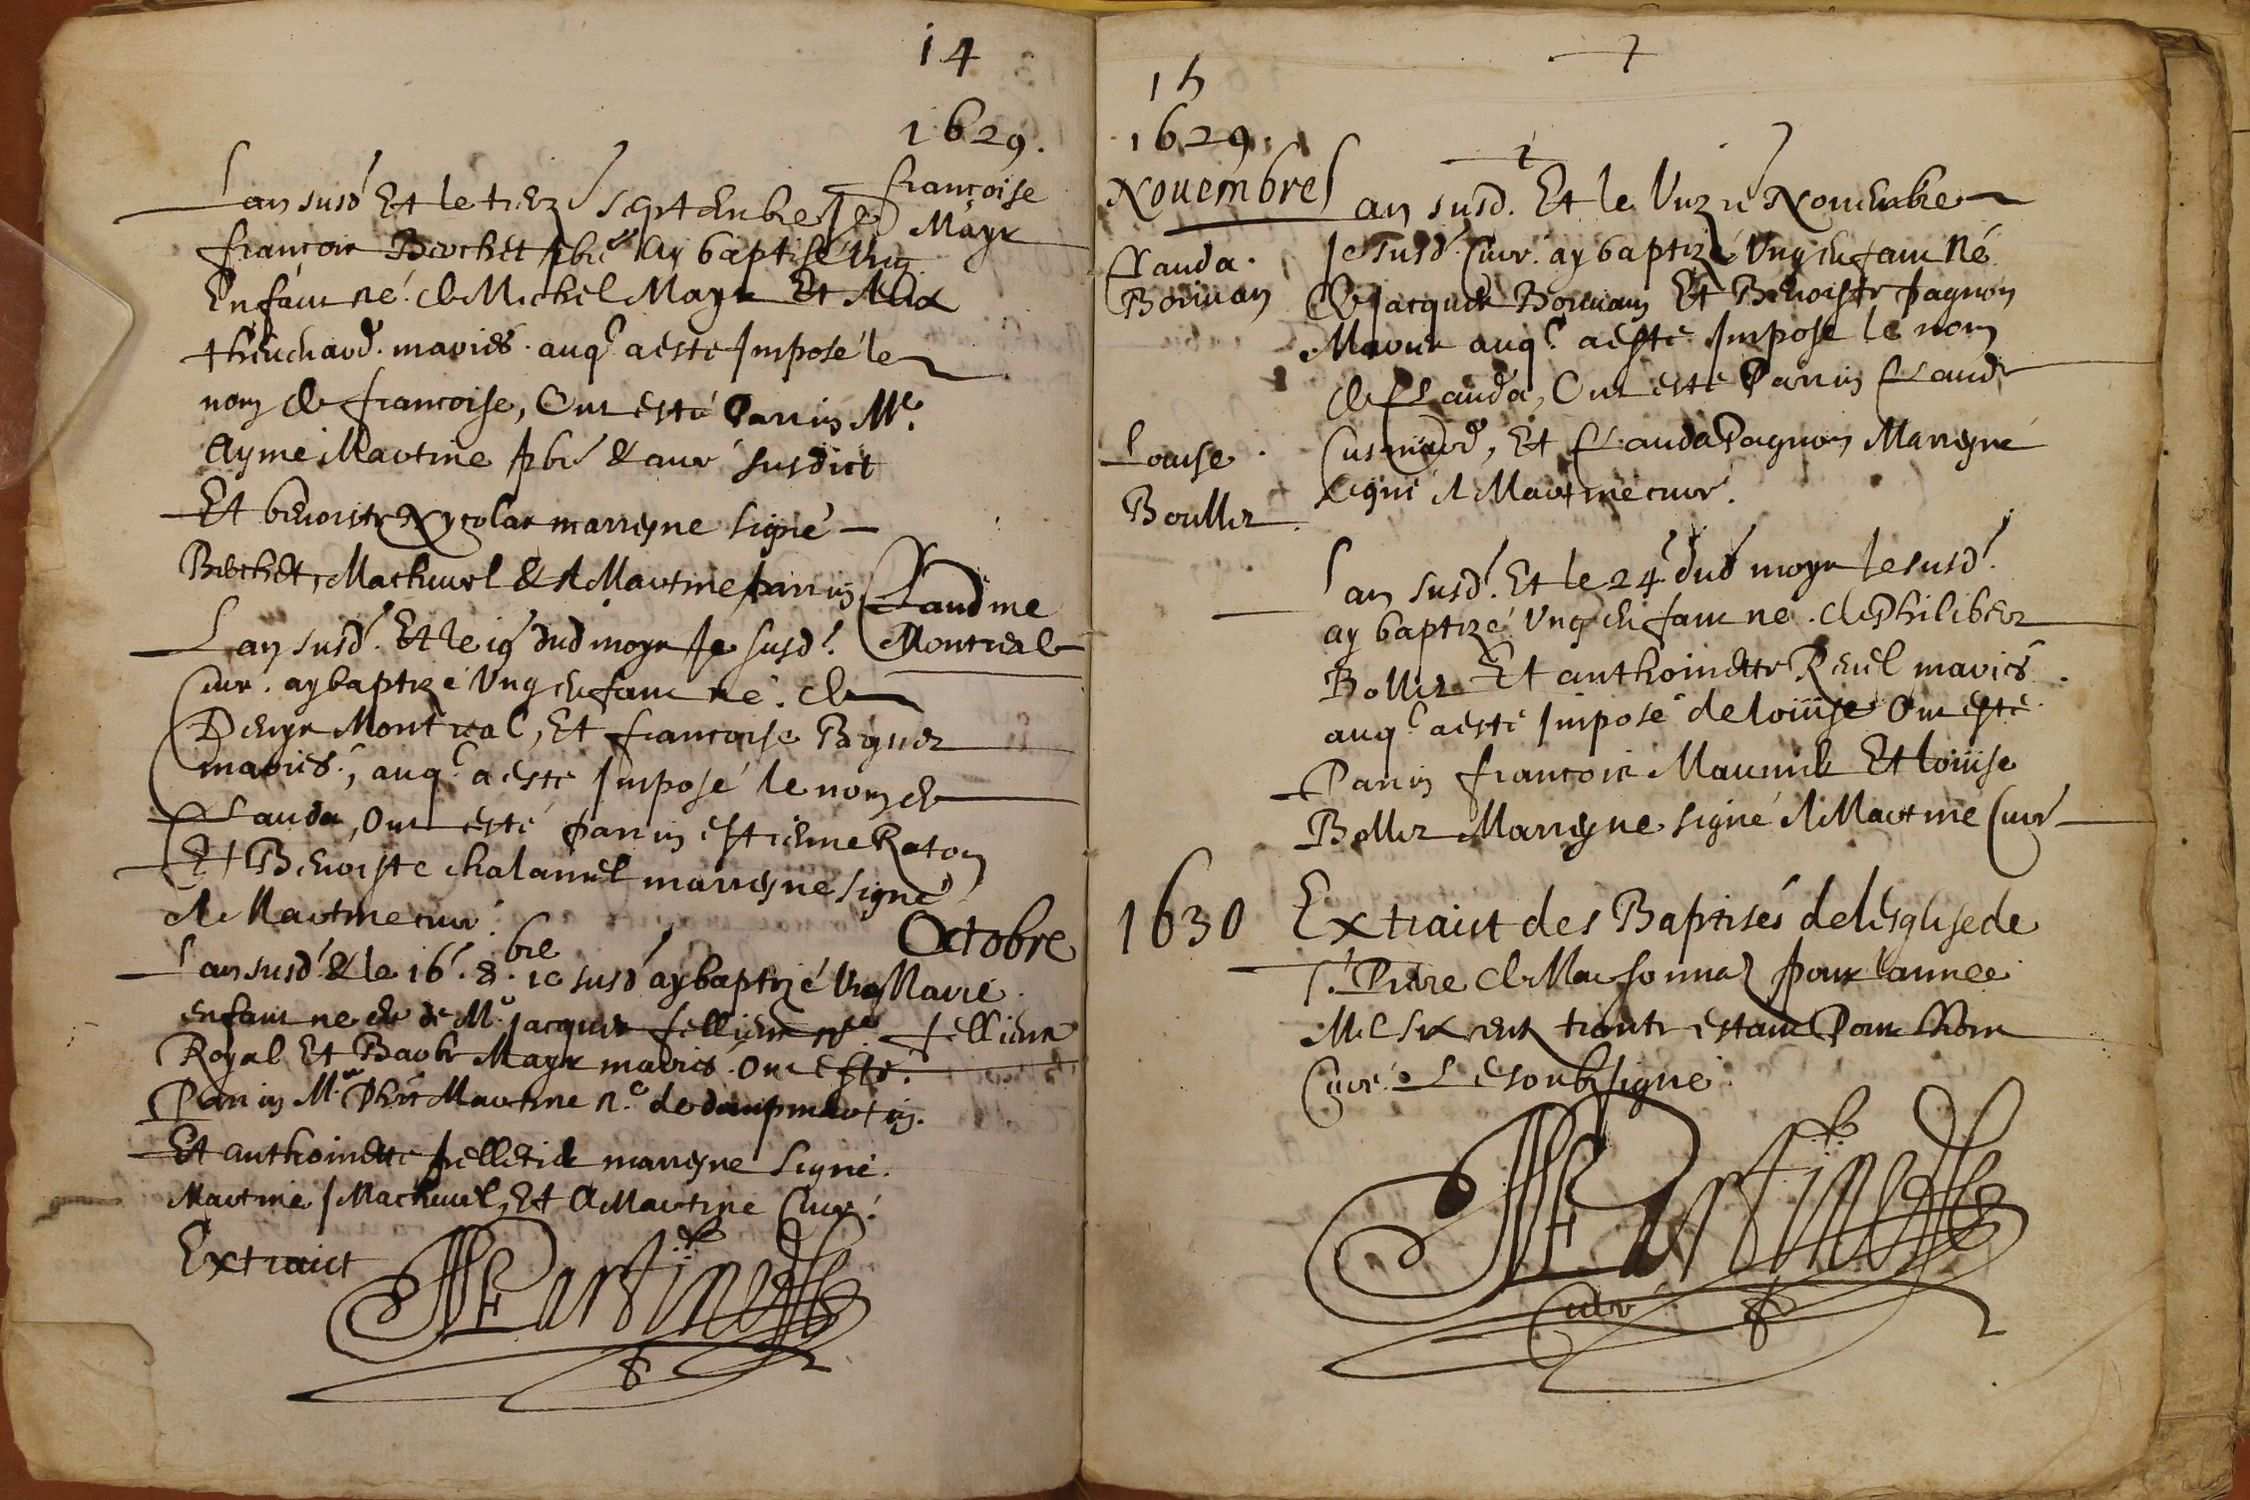 14
1629.
françoise
Mayr
Lan susd Et le treze septenbre Je
françois Brochet pbre Ay baptisé Ung
Enfant né de Michel Mayr Et
mariés auql a esté Imposé le
nom de francoise, Ont esté Parrin Mre
Ayme Martine pbre & curé susdict
Et benoiste Nycolas marreyne signé
Brochet, Mathurel & A Martine parrin
Laudine
Montreal
Lan susd. Et le 19 dud moys Je susd.
Cure. ay baptizé Ung enfant né. de
Denys Montreal, Et francoise
mariés, auql a esté Imposé le nom de
Clauda, Ont esté parrin estienne Raton
Et Benoiste chalamel marreyne signé
A Martine curé
Octobre
Lan susd & le 16 8bre Je susd ay baptizé Ung
Marie
fellieur
enfant ne de de Mre Jacques fellieur nre
Royal Et Barbe Mayr mariés. Ont esté
Parrin Mre Martine nre de dompmartin.
Et anthoinette pelletier marreyne Signé.
Martine / Mathurel, Et A Martine Curé.
Extraict
Martine
15
1629.
Novembre
Lan susd. Et le Unze Novembre
Clauda
Borivan
Je susd. Curé. ay baptizé Ung enfant Né
de Jacques Borivan Et Benoiste pagnon
Mariés auql a esté Imposé le nom
de Clauda, Ont esté Parrin Claude
Cusinard, Et Clauda Pagnon Marreyne
signé A Martine curé.
Louise
Bouller
Lan susd. Et le 24 dud moys Je susd.
ay baptizé Ung enfant né. de Philiber
Boller Et anthoinette Revel mariés
auql a esté Imposé de loüise Ont esté
Parrin francois Et loüise
Boller Marreyne signé A Martine Curé
1630
Extraict des Baptisés de lesglise de
St. Pierre de Marsonnaz pour lannee
Mil six cent trente estant Pour lhors
Curé Le soubsigné
Martine
Curé